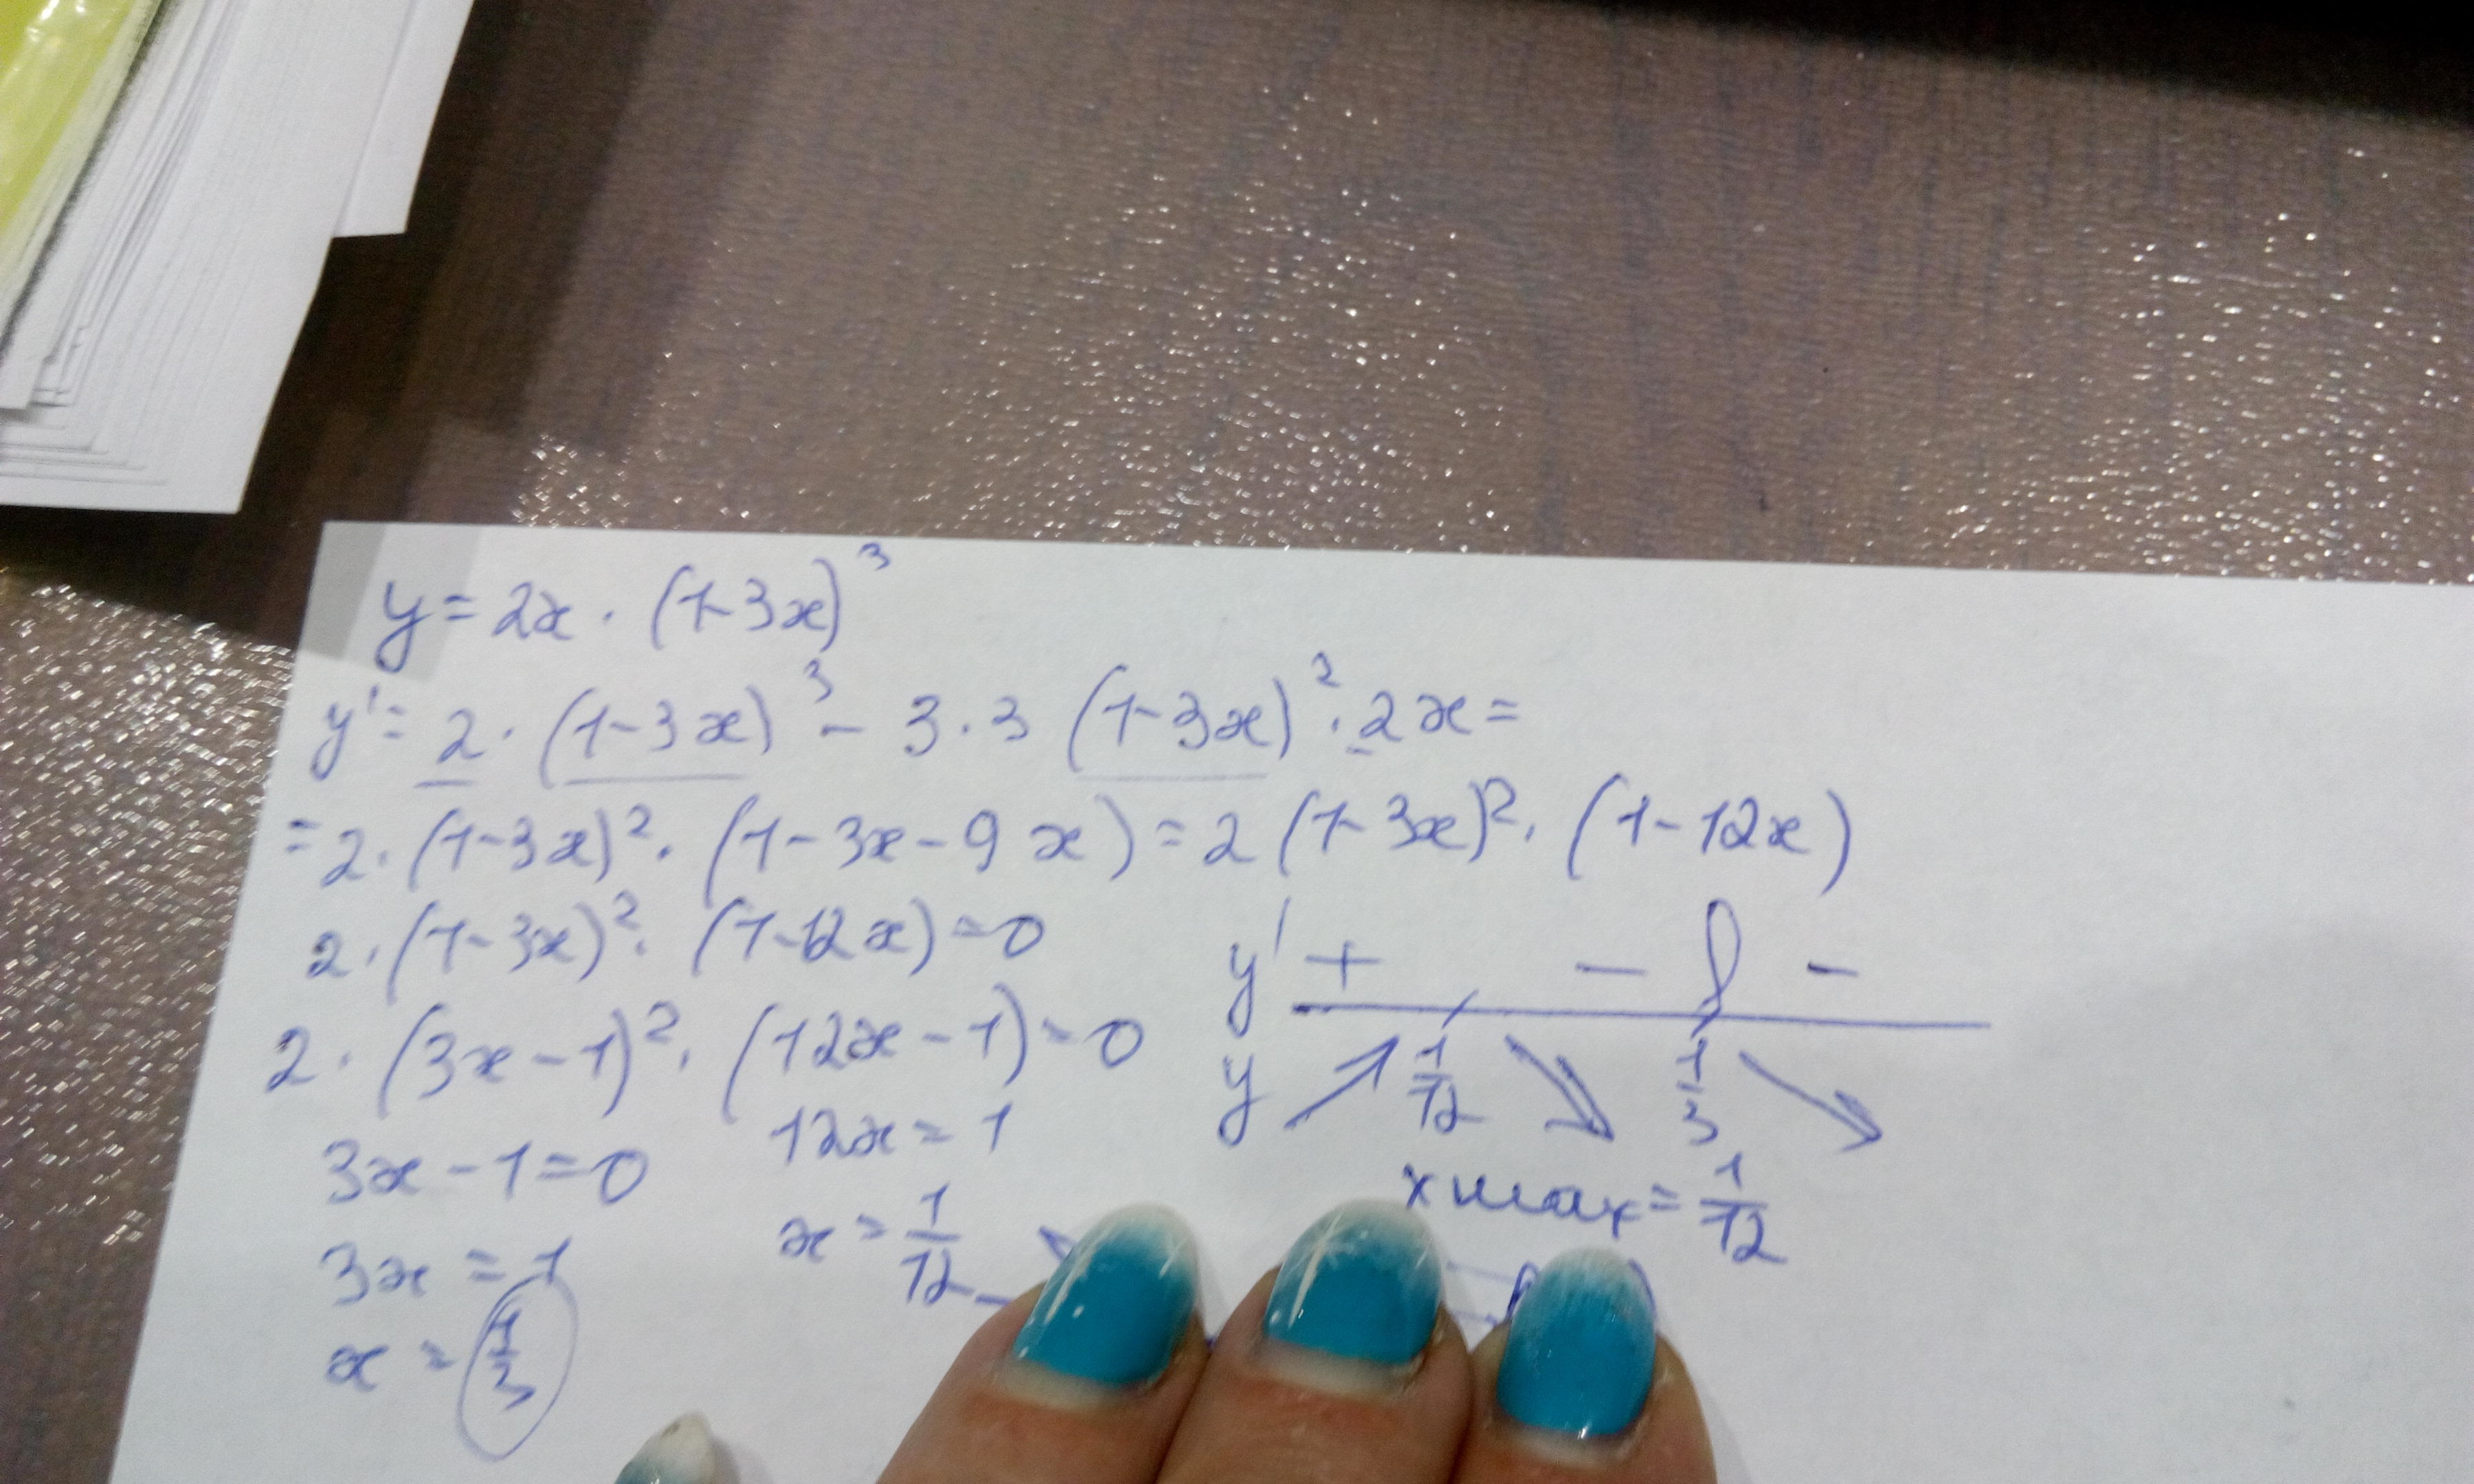 y = 2x · (1-3x)³
y' = 2 · (1-3x)³ - 3·3 (1-3x)² · 2x =
= 2 · (1-3x)² · (1-3x-9x) = 2 (1-3x)² · (1-12x)
2 · (1-3x)² · (1-12x) = 0
2 · (3x-1)² · (12x-1) = 0
3x-1=0
12x = 1
3x = 1
x = 1/12
x = 1/3
y' + - -
y 1/12 1/3
xmax = 1/12